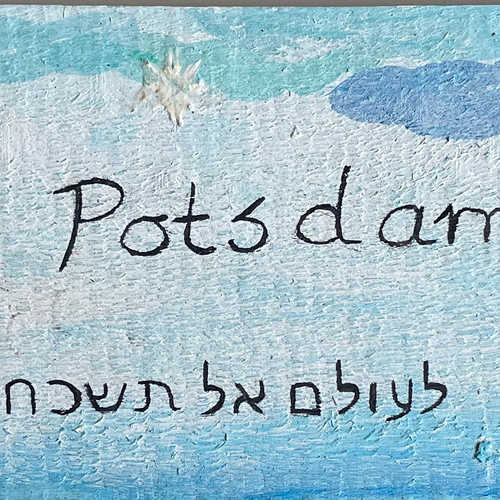 Potsdam
לעולם אל תשכח